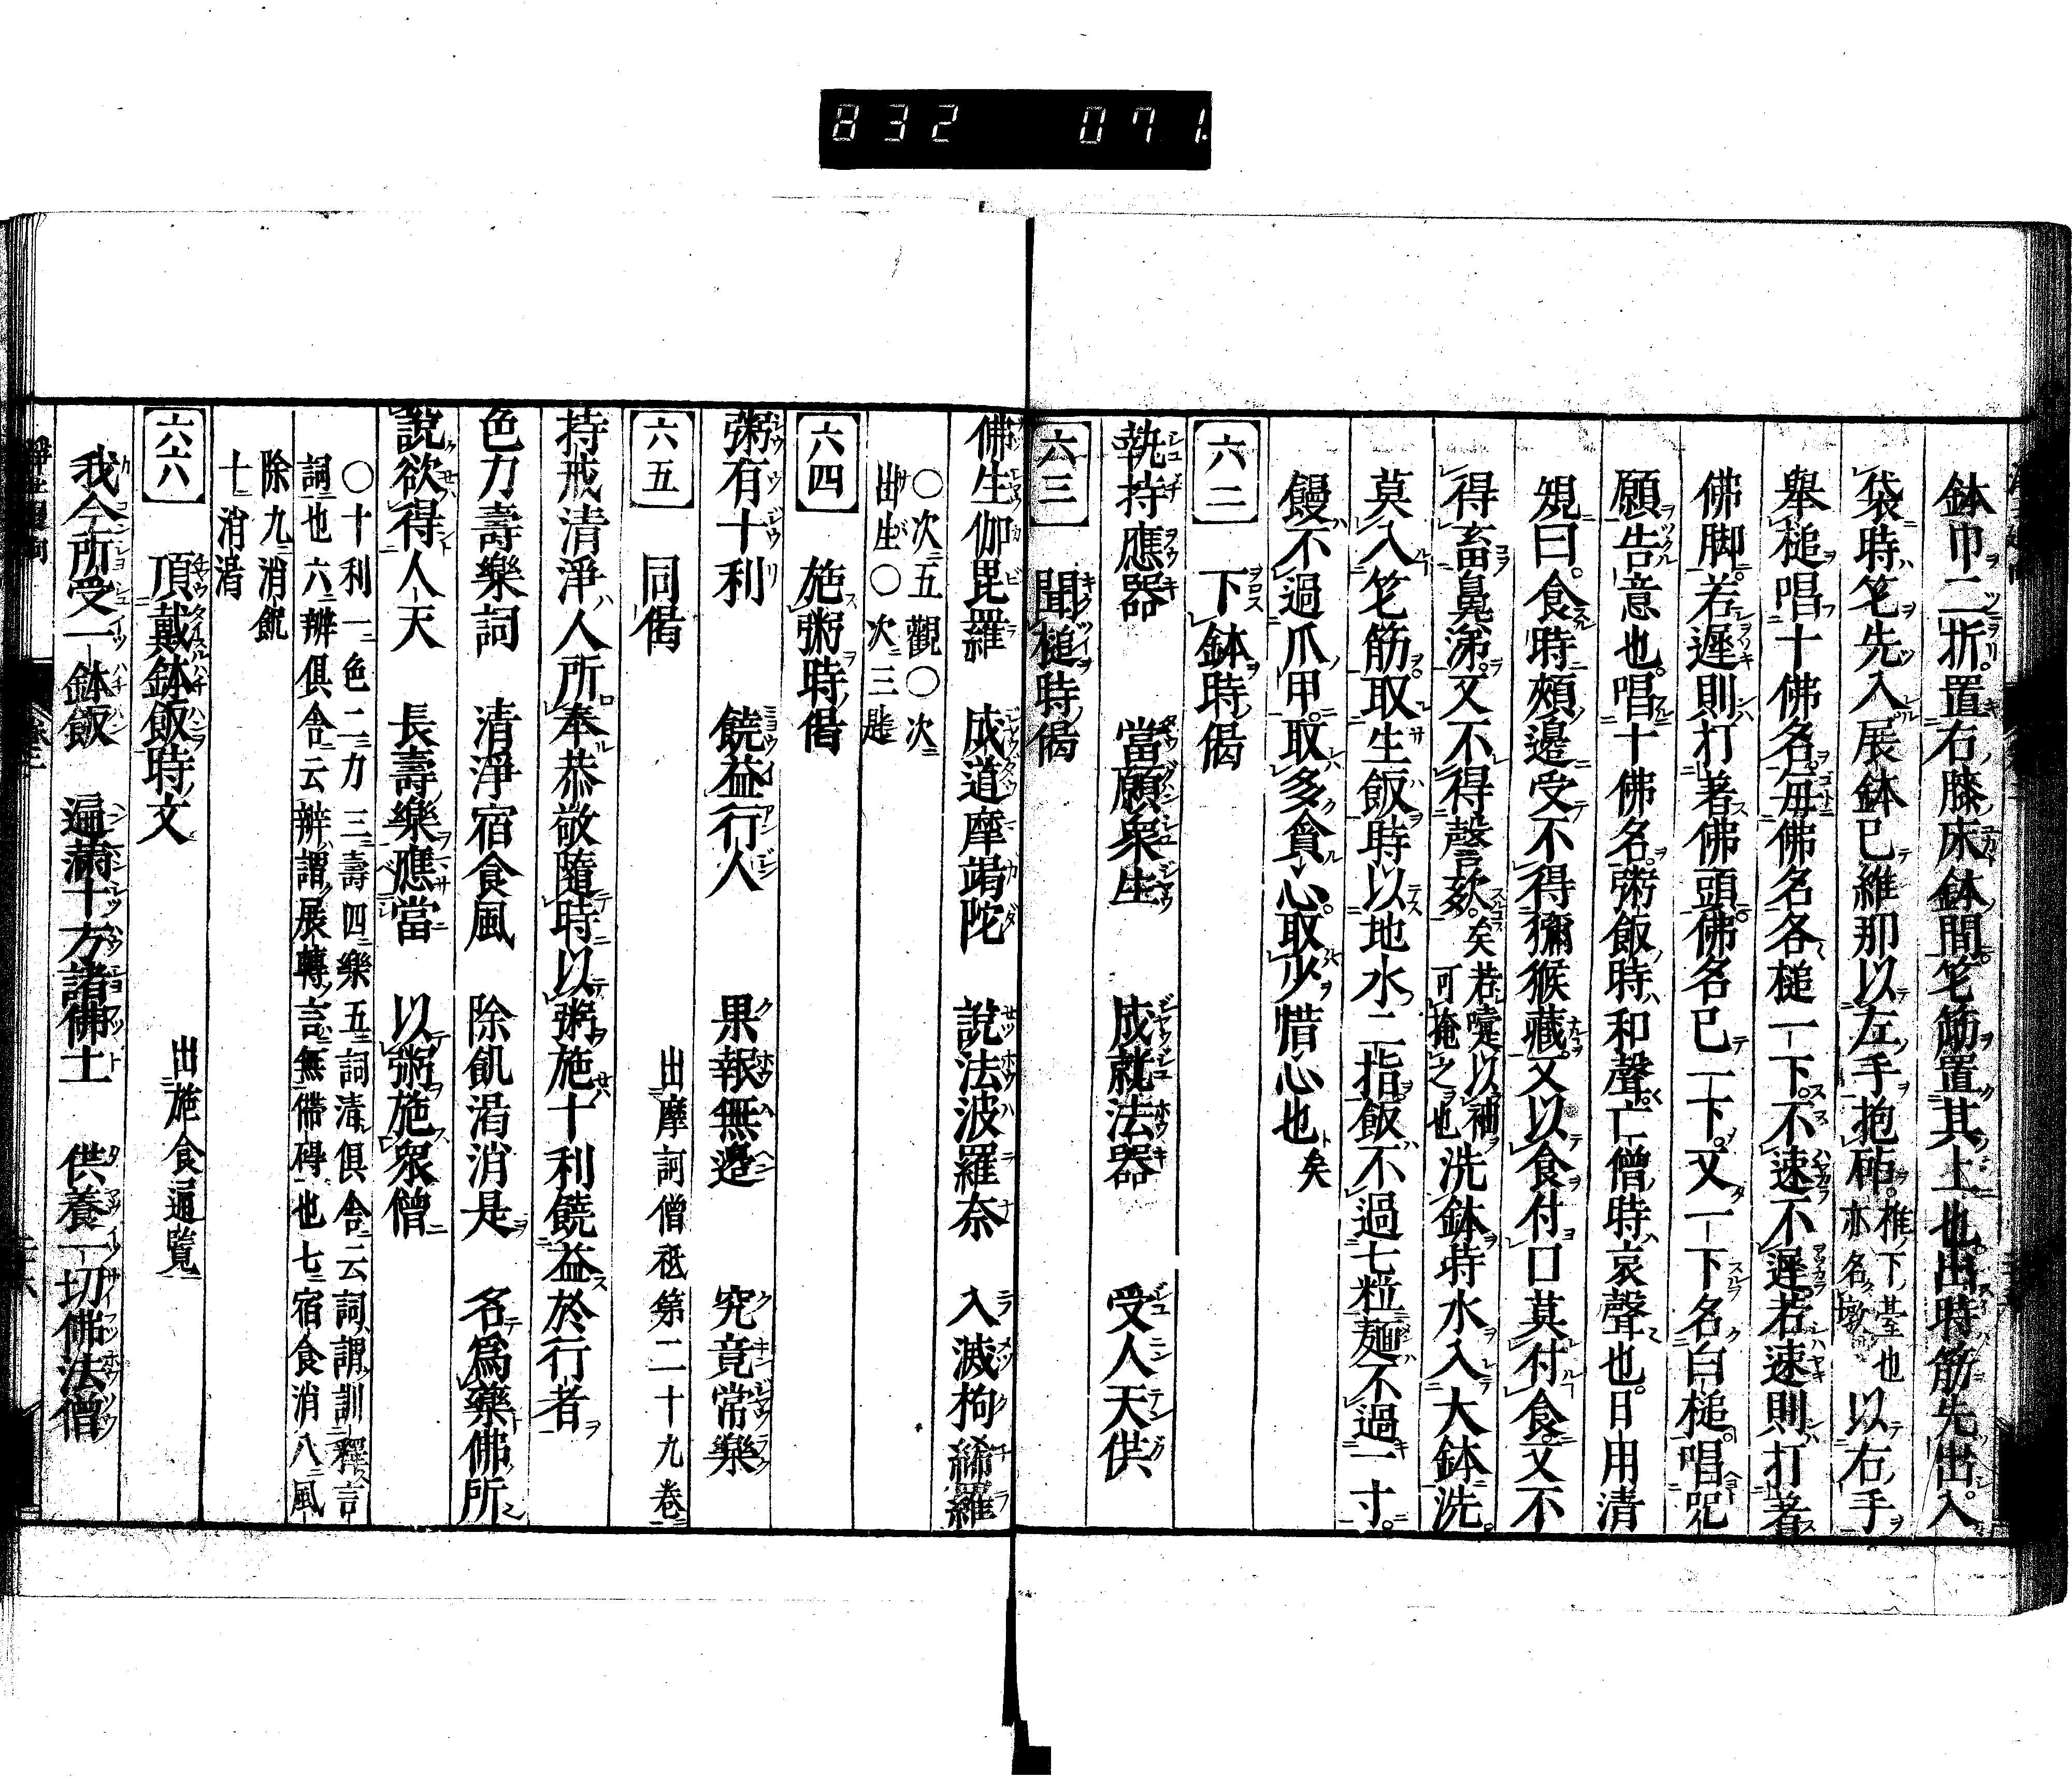 832 071
鉢巾二折置右膝床鉢間匙筋置其上也出時筋先出入
袋時匙先入展鉢已維那以左手抱砧椎下臺也亦名墩以右手
舉槌唱十佛名毎佛名各槌一下不速不遲若速則打著
佛脚若遲則打著佛頭佛名已一下又一下名白槌唱咒
願告意也唱十佛名粥飯時和聲亡僧時哀聲也日用清
規曰食時頰邊受不得獼猴藏又以食付口莫付食又不
得畜鼻涕又不得謦欬矣若嚏以袖可掩之也洗鉢時水入大鉢洗
莫入匙筋取生飯時以地水二指飯不過七粒麺不過一寸
饅不過爪甲取多貪心取少惜心也矣
六二 下鉢時偈
執持應器 當願衆生 成就法器 受人天供
六三 聞槌時偈
佛生伽毘羅 成道摩竭陀 説法波羅奈 入滅拘絺羅
〇次五觀〇次
出生〇次三匙
六四 施粥時偈
粥有十利 饒益行人 果報無邊 究竟常樂
六五 同偈 出摩訶僧祇第二十九卷
持戒清淨人所奉恭敬隨時以粥施十利饒益於行者
色力壽樂詞 清淨宿食風 除飢渇消是 名爲藥佛所
說欲得人天 長壽樂應當 以粥施衆僧
〇十利一色二力三壽四樂五詞清俱舍云詞謂訓釋言
詞也六辨俱舍云辨謂展轉言無滯碍也七宿食消八風
除九消飢
十消渇
六六 頂戴鉢飯時文 出施食通覽
我今所受一鉢飯 遍滿十方諸佛土 供養一切佛法僧